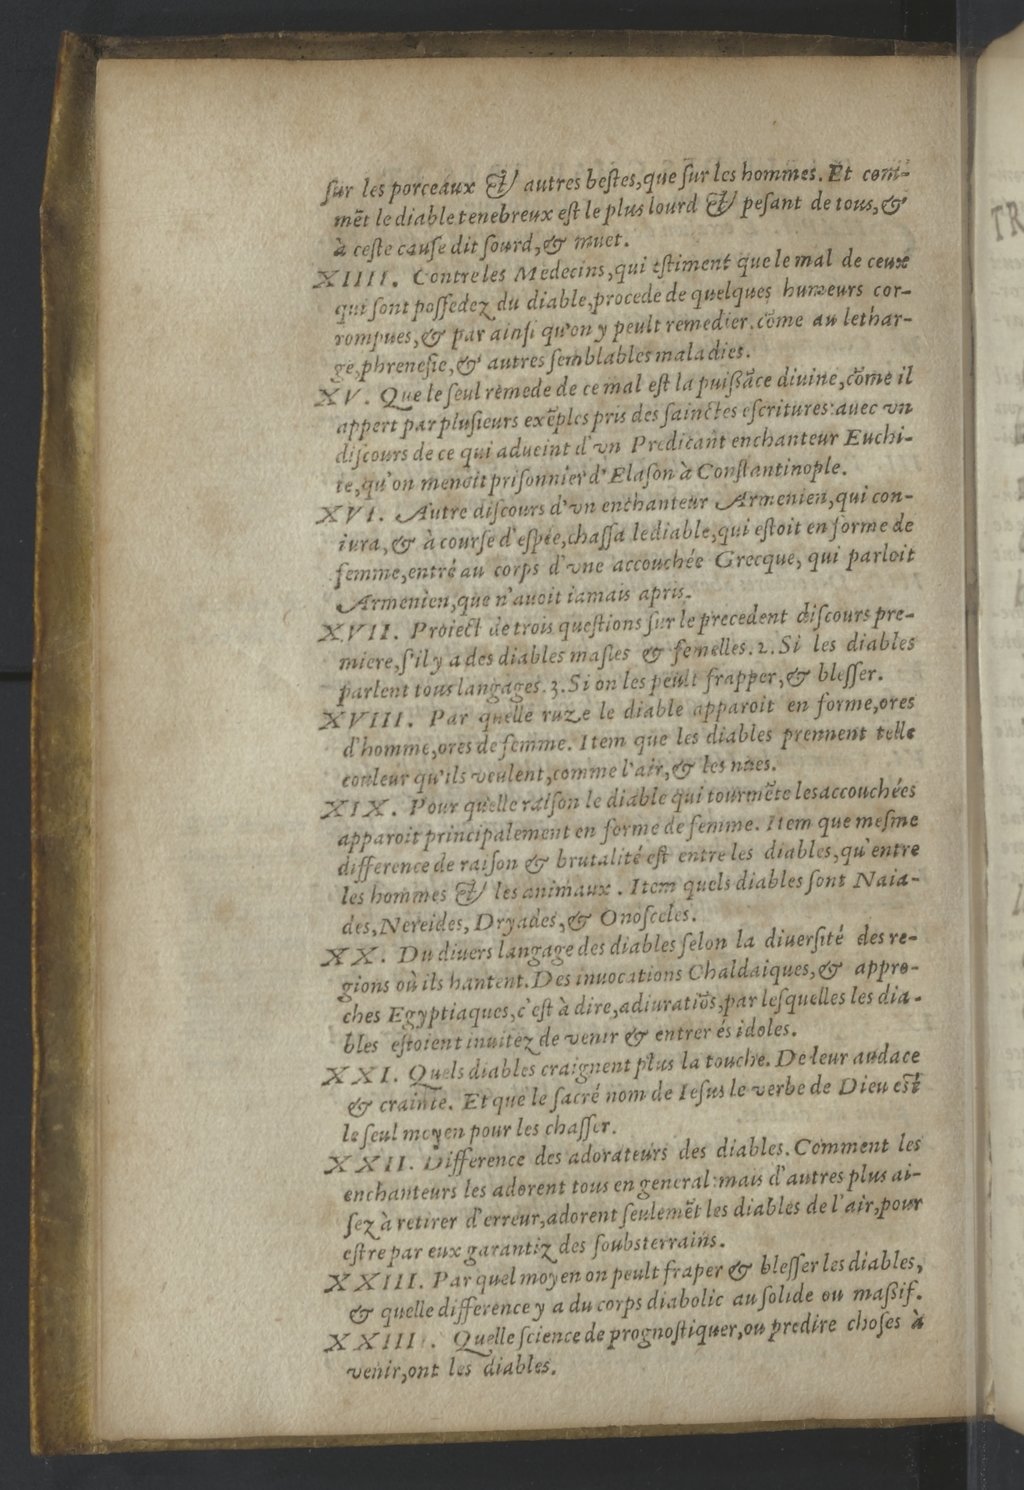 sur les porceaux & autres bestes, que sur les hommes. Et com-
mēt le diable tenebreux est le plus lourd & pesant de tous, &
à ceste cause dit sourd, & muet.
XIIII. Contre les Medecins, qui estiment que le mal de ceux
qui sont possedez du diable, procede de quelques humeurs cor-
rompues, & par ainsi qu'on y peult remedier, cōme au lethar-
ge, phrenesie, & autres semblables maladies.
XV. Que le seul remede de ce mal est la puissāce diuine, cōme il
appert par plusieurs exēples pris des sainctes escritures: auec vn
discours de ce qui adueint d'vn Predicant enchanteur Euchi-
te, qu'on menoit prisonnier d'Elason à Constantinople.
XVI. Autre discours d'vn enchanteur Armenien, qui con-
iura, & à course d'espée, chassa le diable, qui estoit en forme de
femme, entré au corps d'vne accouchée Grecque, qui parloit
Armenien, que n'auoit iamais apris.
XVII. Proiect de trois questions sur le precedent discours pre-
miere, s'il y a des diables masles & femelles. 2. Si les diables
parlent tous langages. 3. Si on les peult frapper, & blesser.
XVIII. Par quelle ruze le diable apparoit en forme, ores
d'homme, ores de femme. Item que les diables prennent telle
couleur qu'ils veulent, comme l'air, & les nues.
XIX. Pour quelle raison le diable qui tourmēte les accouchées
apparoit principalement en forme de femme. Item que mesme
difference de raison & brutalité est entre les diables, qu'entre
les hommes & les animaux. Item quels diables sont Naia-
des, Nereides, Dryades, & Onosceles.
XX. Du diuers langage des diables selon la diuersité des re-
gions où ils hantent. Des inuocations Chaldaiques, & appro-
ches Egyptiaques, c'est à dire, adiuratiōs, par lesquelles les dia-
bles estoient inuitez de venir & entrer és idoles.
XXI. Quels diables craignent plus la touche. De leur audace
& crainte. Et que le sacré nom de Iesus le verbe de Dieu est
le seul moyen pour les chasser.
XXII. Difference des adorateurs des diables. Comment les
enchanteurs les adorent tous en general: mais d'autres plus ai-
sez à retirer d'erreur, adorent seulemēt les diables de l'air, pour
estre par eux garantiz des soubsterrains.
XXIII. Par quel moyen on peult fraper & blesser les diables,
& quelle difference y a du corps diabolic au solide ou massif.
XXIIII. Quelle science de prognostiquer, ou predire choses à
venir, ont les diables.
TR